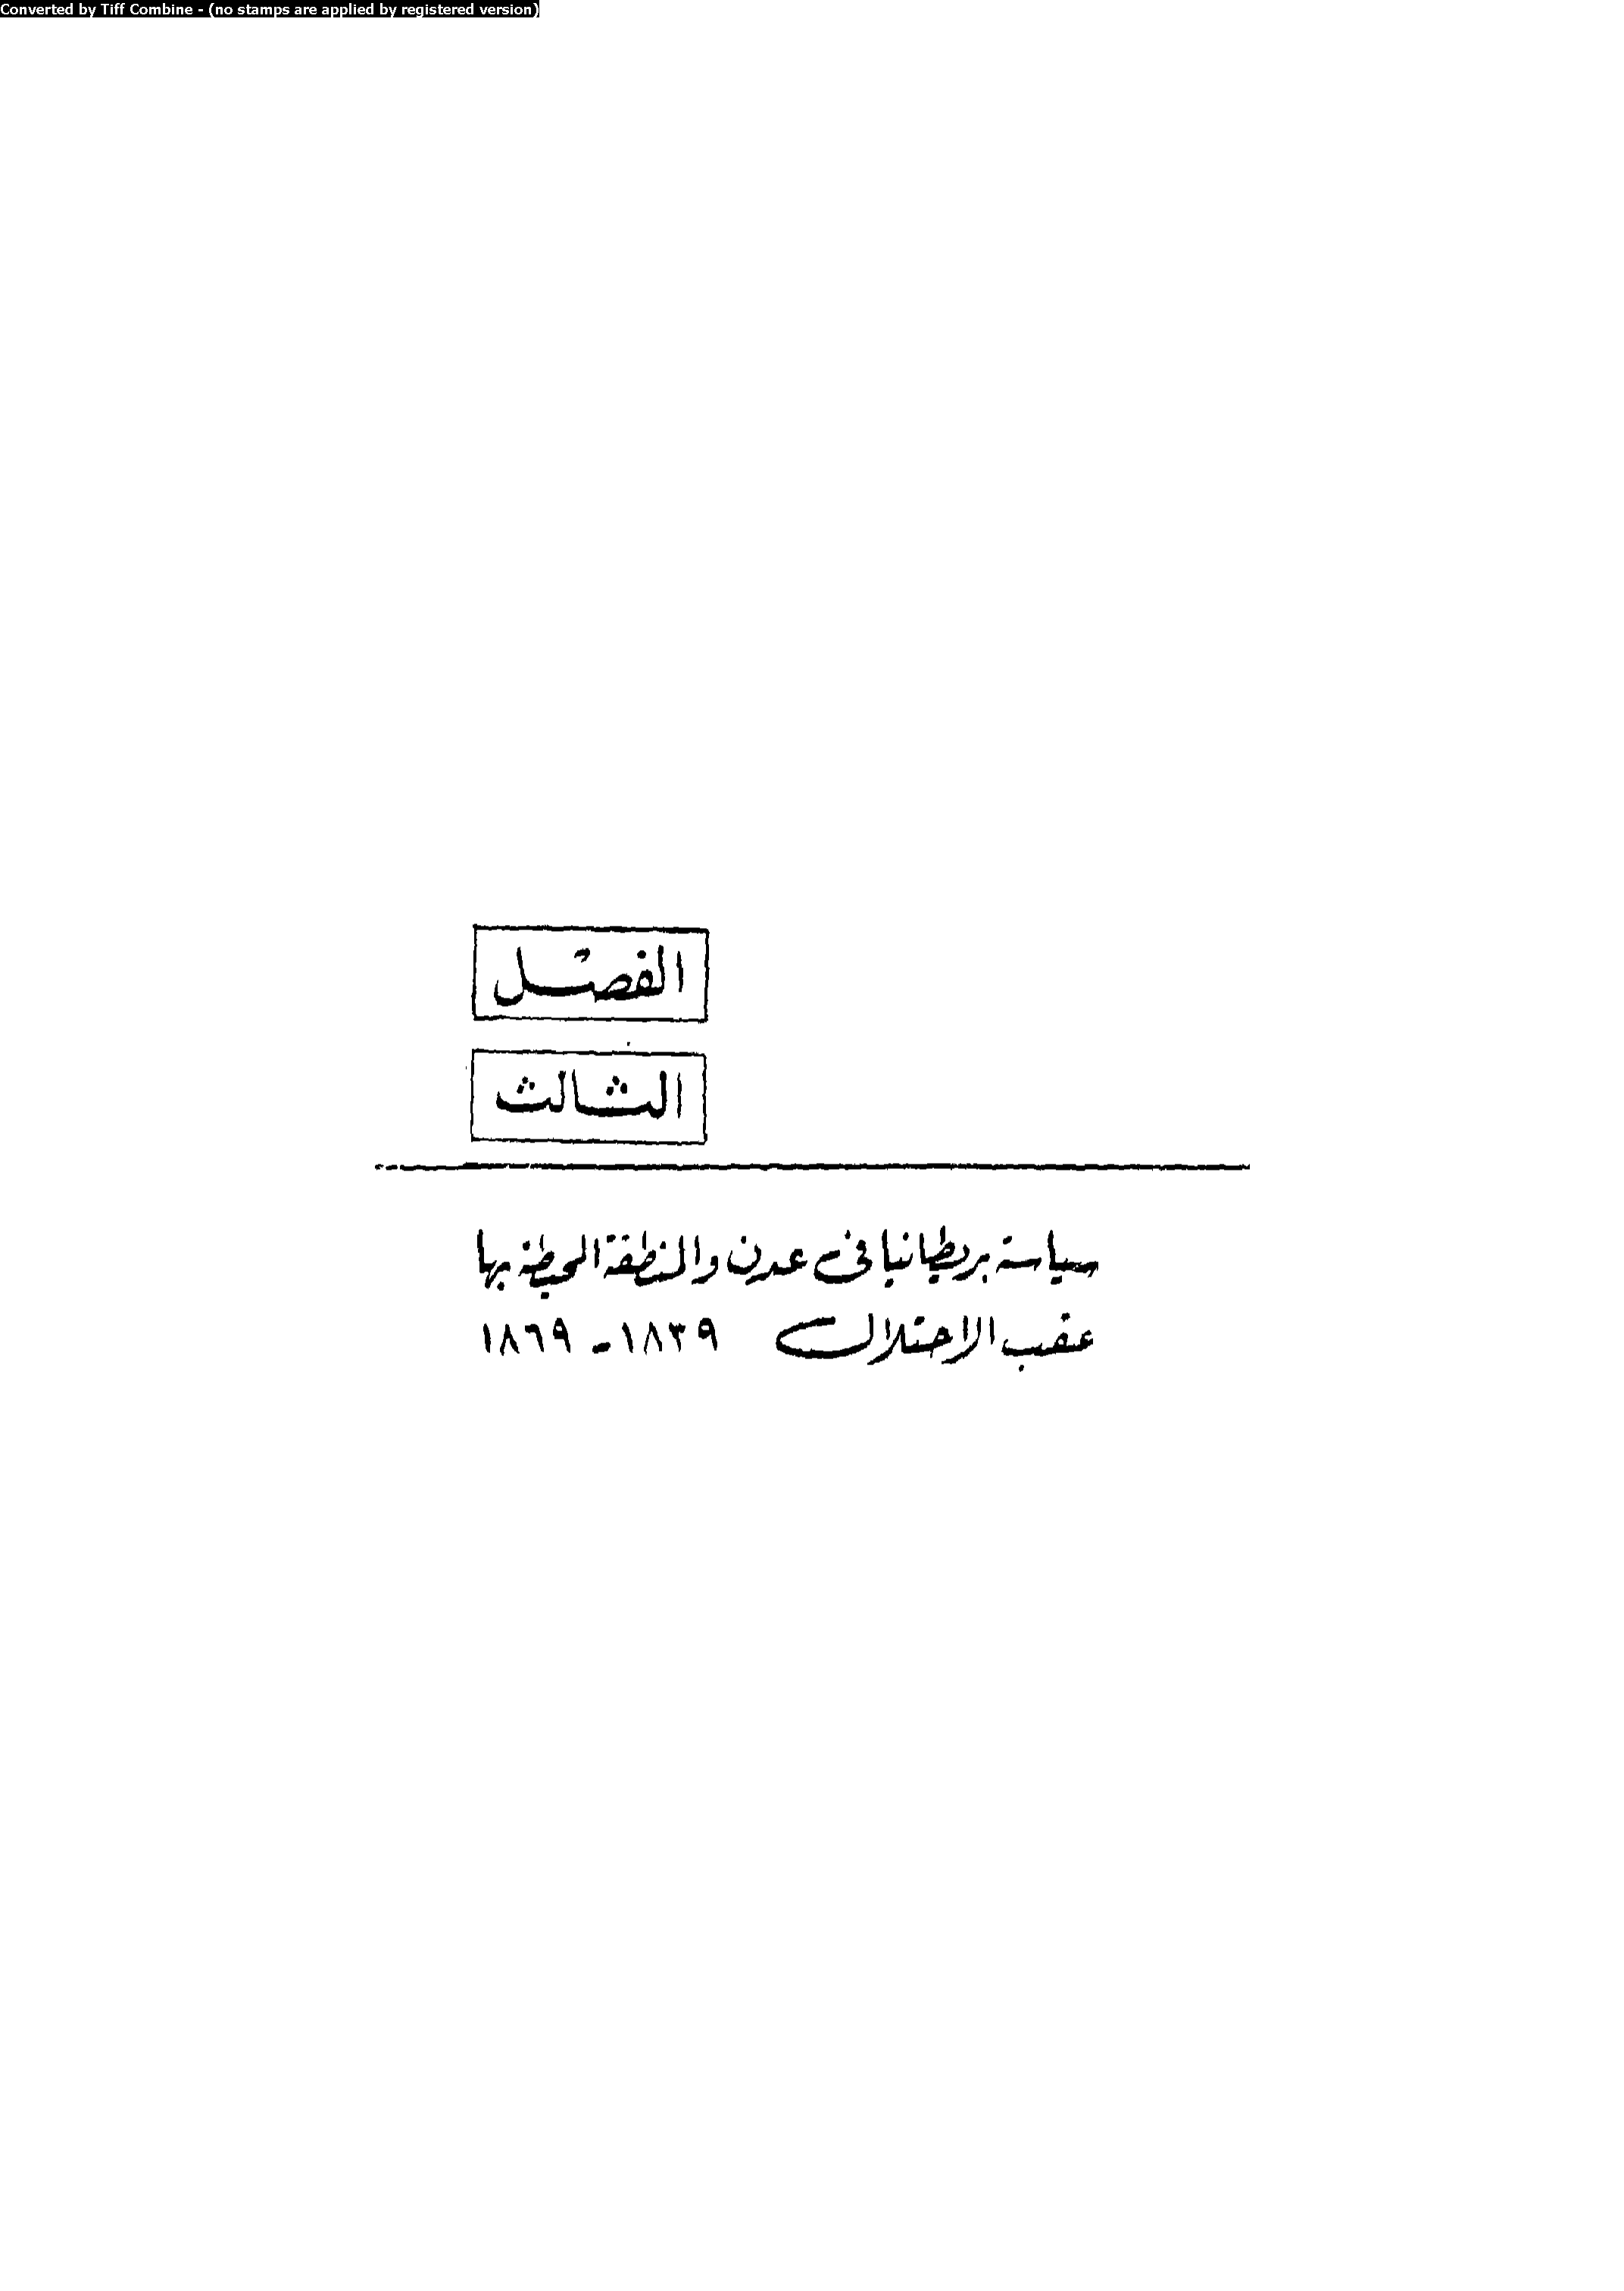 Converted by Tiff Combine - (no stamps are applied by registered version)
الفصل
الثالث
سياسة بريطانيا فى عدن والمنطقة المحيطة بها
عقب الاحتلال ١٨٣٩ - ١٨٦٩